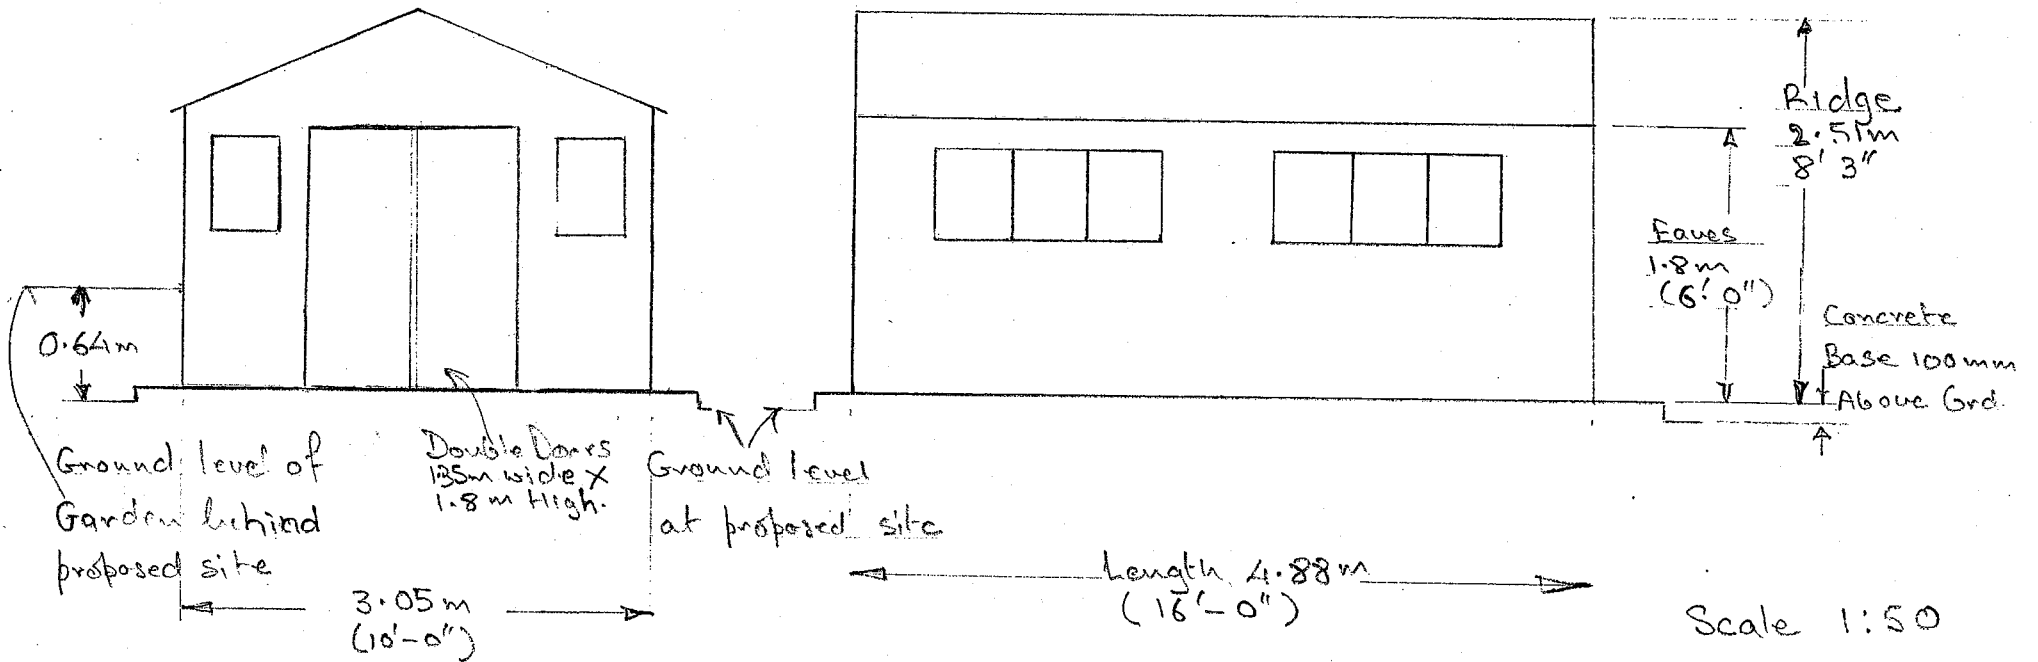 Ridge
2.51m
8' 3"
Eaves
1.8m
(6' 0")
Concrete
Base 100mm
Above Grd.
0.64m
Ground level of
Garden behind
proposed site
Double Doors
1.35m wide X
1.8m High.
Ground level
at proposed site
3.05m
(10'-0")
Length 4.88m
(16'-0")
Scale 1:50